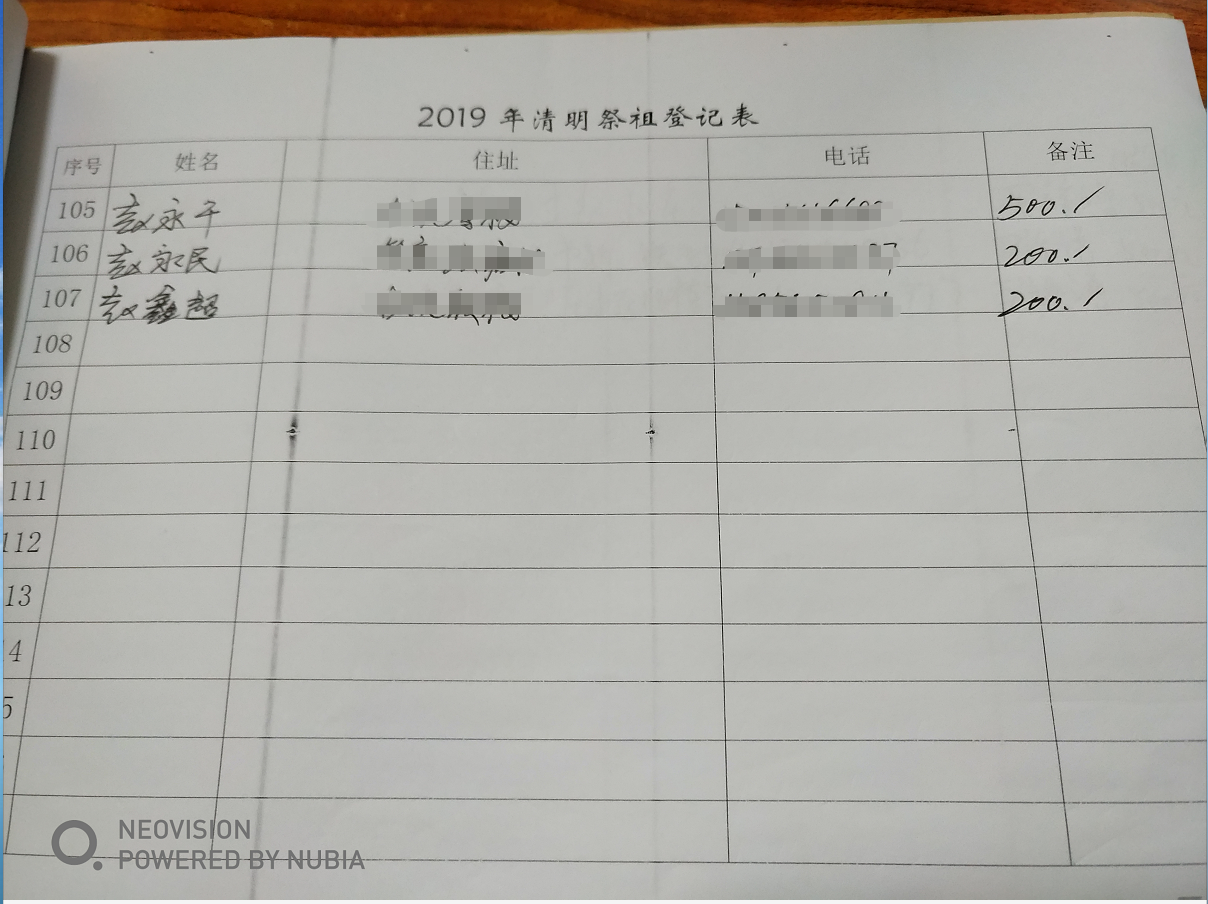 2019 年清明祭祖登记表
序号 姓名 住址 电话 备注
105 赵永千 500.
106 赵永民 200.
107 赵鑫超 200.
108
109
110
111
112
13
14
5
NEOVISION
POWERED BY NUBIA